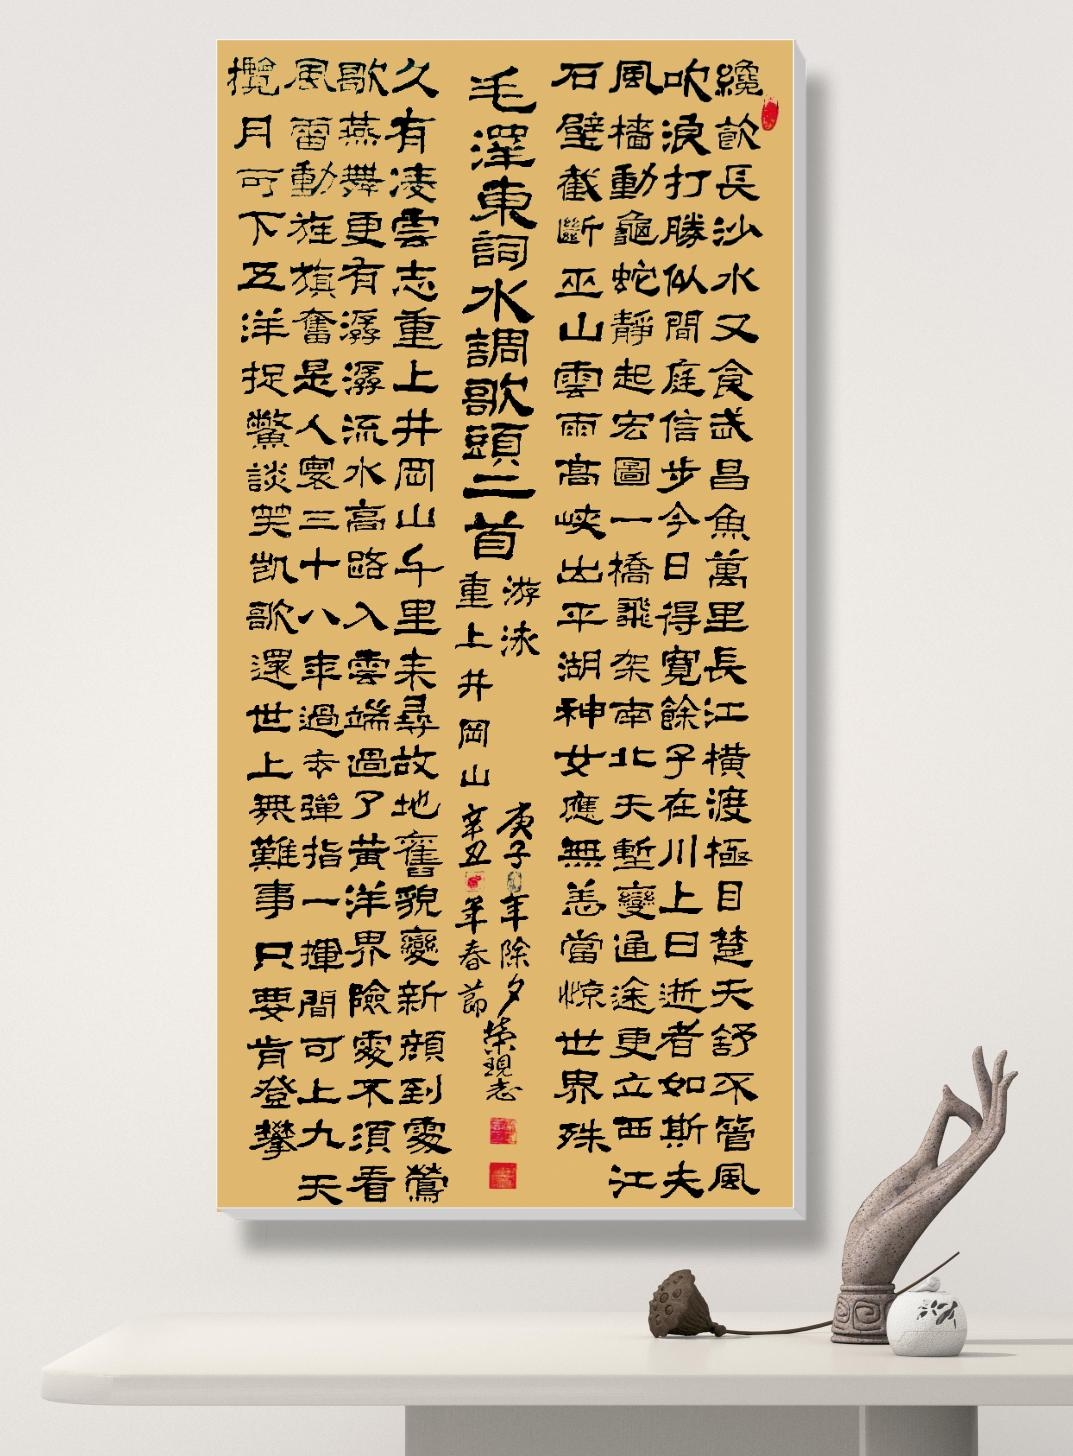 纔飲長沙水又食武昌魚萬里長江橫渡極目楚天舒不管風
吹浪打勝似間庭信步今日得寬餘子在川上曰逝者如斯夫
風檣動龜蛇靜起宏圖一橋飛架南北天塹變通途更立西江
石壁截斷巫山雲雨高峽出平湖神女應無恙當惊世界殊
毛澤東詞水調歌頭二首
游泳
重上井岡山
庚子年除夕
辛丑年春節
榮現志
久有凌雲志重上井岡山千里来尋故地舊貌變新顔到處鶯
歌燕舞更有潺潺流水高路入雲端過了黃洋界險處不須看
風雷動旌旗奮是人寰三十八年過去彈指一揮間可上九天
攬月可下五洋捉鱉談笑凱歌還世上無難事只要肯登攀